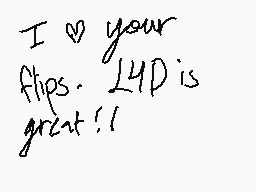 I ♡ your
flips. L4D is
great!!